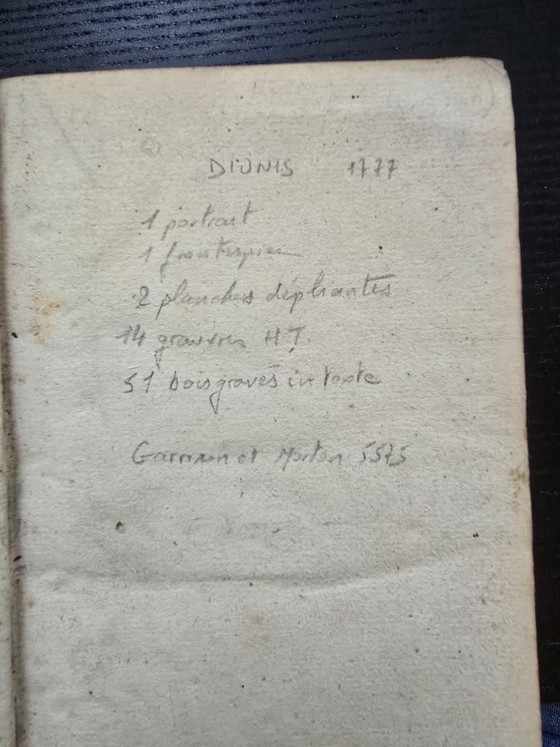 DIONIS 1777
1 portrait
1 frontispice
2 planches dépliantes
14 gravures H T.
51 bois gravés in texte
Garrison et Morton 5575